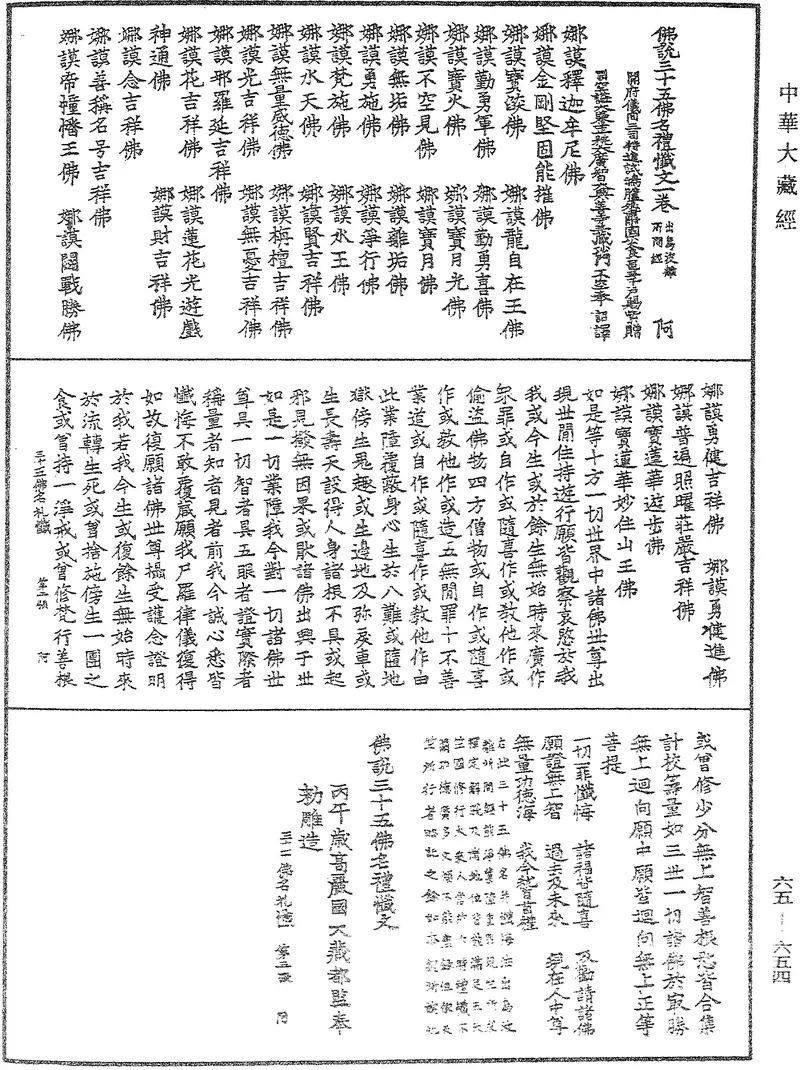 中華大藏經
佛說三十五佛名禮懺文一卷 出烏波離所問經 阿
開府儀同三司特進試鴻臚卿肅國公食邑三千戶賜紫贈
司空諡大鑒正號大廣智大興善寺三藏沙門不空奉 詔譯
娜謨釋迦牟尼佛
娜謨金剛堅固能摧佛
娜謨寶燄佛 娜謨龍自在王佛
娜謨勤勇軍佛 娜謨勤勇喜佛
娜謨寶火佛 娜謨寶月光佛
娜謨不空見佛 娜謨寶月佛
娜謨無垢佛 娜謨離垢佛
娜謨勇施佛 娜謨淨行佛
娜謨梵施佛 娜謨水王佛
娜謨水天佛 娜謨賢吉祥佛
娜謨無量威德佛 娜謨栴檀吉祥佛
娜謨光吉祥佛 娜謨無憂吉祥佛
娜謨那羅延吉祥佛
娜謨花吉祥佛 娜謨蓮花光遊戲
神通佛 娜謨財吉祥佛
娜謨念吉祥佛
娜謨善稱名号吉祥佛
娜謨帝幢幡王佛 娜謨鬪戰勝佛
娜謨勇健吉祥佛 娜謨勇健進佛
娜謨普遍照曜莊嚴吉祥佛
娜謨寶蓮華遊步佛
娜謨寶蓮華妙住山王佛
如是等十方一切世界中諸佛世尊出
現世間住持遊行願皆觀察哀愍於我
我或今生或於餘生無始時來廣作
眾罪或自作或隨喜作或教他作或
偷盜佛物四方僧物或自作或隨喜
作或教他作或造五無間罪十不善
業道或自作或隨喜作或教他作由
此業障覆蔽身心生於八難或墮地
獄傍生鬼趣或生邊地及弥戾車或
生長壽天設得人身諸根不具或起
邪見撥無因果或猒諸佛出興于世
如是一切業障我今對一切諸佛世
尊具一切智者具五眼者證實際者
稱量者知者見者前我今誠心悉皆
懺悔不敢覆藏願我尸羅律儀復得
如故復願諸佛世尊攝受護念證明
於我若我今生或復餘生無始時來
於流轉生死或曾捨施傍生一團之
食或曾持一淨戒或曾修梵行善根
三十五佛名礼懺 第二張 阿
或曾修少分無上智善根悉皆合集
計校籌量如三世一切諸佛於最勝
無上迴向願中願皆迴向無上正等
菩提
一切罪懺悔 諸福皆隨喜 及勸請諸佛
願證無上智 過去及未來 現在人中尊
無量功德海 我今稽首禮
右此三十五佛名并懺悔法出烏波
離所問經能淨業障重罪現生所求
禪定解脫及諸地位皆能滿足五天
竺國修行大乘人常於六時禮懺不
闕功德廣多文煩不能盡錄但依天
竺所行者略記之餘如本經所述也
佛說三十五佛名禮懺文
丙午歲高麗國大藏都監奉
勑雕造
三十五佛名礼懺 第三張 阿
六五—六五四